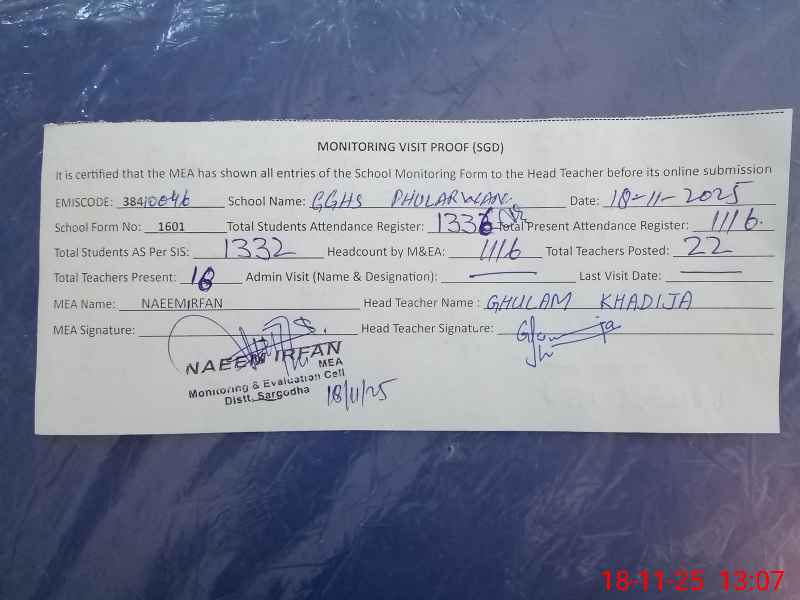 MONITORING VISIT PROOF (SGD)
It is certified that the MEA has shown all entries of the School Monitoring Form to the Head Teacher before its online submission
EMISCODE: 38410046 School Name: GGHS PHULARWAN. Date: 18-11-2025
School Form No: 1601 Total Students Attendance Register: 1336 Total Present Attendance Register: 1116.
Total Students AS Per SIS: 1332 Headcount by M&EA: 1116 Total Teachers Posted: 22
Total Teachers Present: 18 Admin Visit (Name & Designation): — Last Visit Date: —
MEA Name: NAEEMIRFAN Head Teacher Name : GHULAM KHADIJA
MEA Signature: Head Teacher Signature:
NAEEM IRFAN
MEA
Monitoring & Evaluation Cell
Distt. Sargodha
18/11/25
18-11-25 13:07